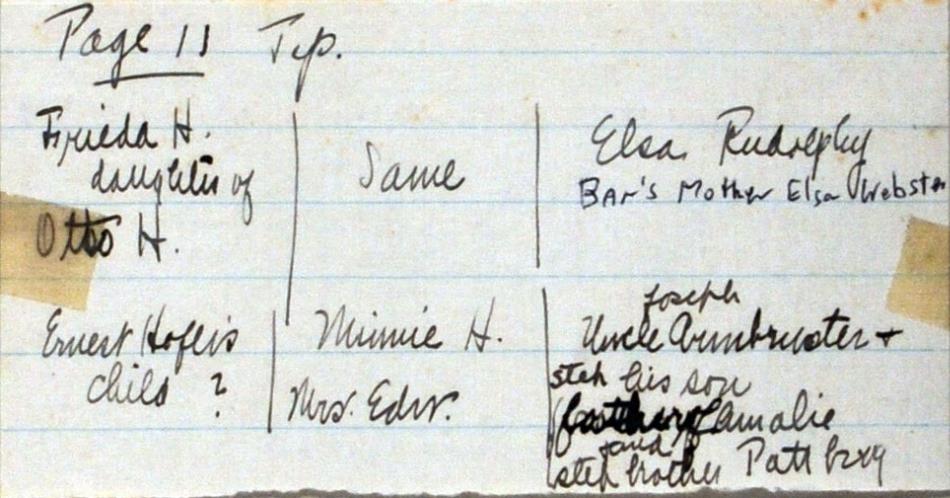 Page 11 Top.
Frieda H.
daughter of
Otto H.
Same
Elsa Rudolphy
BAr's Mother Elsa Webster
Ernest Hofli's
child ?
Minnie H.
Mrs. Edw.
Joseph
Uncle Armbruster +
step his son
Amalie
and
step brother Pattbrey